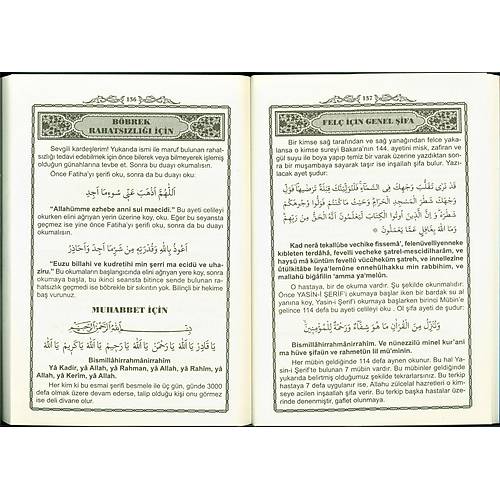 156
BÖBREK
RAHATSIZLIĞI İÇİN
Sevgili kardeşlerim! Yukarıda ismi ile maruf bulunan rahat-
sızlığı tedavi edebilmek için önce bilerek veya bilmeyerek işlemiş
olduğun günahlarına tevbe et. Sonra bu duayı okumalı.
Önce Fatiha'yı şerifi oku, sonra da bu duayı oku:
اَللّٰهُمَّ اَذْهِبْ عَنّٖى سُوءَ مَا اَجِدُ
"Allahümme ezhebe anni sui maecidi." Bu ayeti celileyi
okurken elini ağrıyan yerin üzerine koy, oku. Eğer bu seyanda
geçmez ise yine önce Fatiha'yı şerifi oku, sonra da bu duayı
okumalısın.
اَعُوذُ بِاللّٰهِ وَقُدْرَتِهِ مِنْ شَرِّ مَا اَجِدُ وَاُحَاذِرُ
"Euzu billahi ve kudretihi min şerri ma ecidü ve uha-
ziru." Bu okumaların başlangıcında elini ağrıyan yere koy, sonra
okumaya başla, bu ikinci seansta bitince sende bulunan ra-
hatsızlık geçmedi ise böbreklerde bir sıkıntın yok. Bilinçli bir hekime
baş vurunuz.
MUHABBET İÇİN
بِسْمِ اللّٰهِ الرَّحْمٰنِ الرَّحِيمِ
يَا قَادِرُ يَا اَللّٰهُ يَا رَحْمٰنُ يَا اَللّٰهُ يَا رَحِيمُ يَا اَللّٰهُ يَا كَرِيمُ يَا اَللّٰهُ
Bismillâhirrahmânirrahîm
Yâ Kadir, yâ Allah, yâ Rahman, yâ Allah, yâ Rahîm, yâ
Allah, yâ Kerîm, yâ Allah.
Her kim ki bu esmai şerifi besmele ile üç gün, günde 3000
defa olmak üzere devam ederse, talip olduğu kişi onu görmez
ise deli divane olur.
157
FELÇ İÇİN GENEL ŞİFA
Bir kimse sağ tarafından ve sağ yanağından felce yaka-
lansa o kimse sureyi Bakara'nın 144. ayetini misk, zafiran ve
gül suyu ile boya yapıp temiz bir varak üzerine yazdıktan son-
ra bir muşambaya sararak taşır ise inşallah şifa bulur. Yazı-
lacak ayet şudur:
قَدْ نَرٰى تَقَلُّبَ وَجْهِكَ فِى السَّمَاءِ فَلَنُوَلِّيَنَّكَ قِبْلَةً تَرْضٰيهَا فَوَلِّ
وَجْهَكَ شَطْرَ الْمَسْجِدِ الْحَرَامِ وَحَيْثُ مَا كُنْتُمْ فَوَلُّوا وُجُوهَكُمْ
شَطْرَهُ وَ اِنَّ الَّذِينَ اُوتُوا الْكِتَابَ لَيَعْلَمُونَ اَنَّهُ الْحَقُّ مِنْ رَبِّهِمْ
وَمَا اللّٰهُ بِغَافِلٍ عَمَّا يَعْمَلُونَ
Kad nerâ tekallübe vechike fissemâ', felenüvelliyenneke kıbleten
terdâhâ, fevelli vecheke şatrel-mescidilharâm, ve
haysü mâ küntüm fevellû vücûheküm şatreh, ve innellezîne
ûtülkitâbe leya'lemûne ennehülhakku min rabbihim, ve
mallahü biğafilin 'amma ya'melûn.
O hastaya bir, de okuma vardır. Şu şekilde okunmalıdır.
Önce YASİN-İ ŞERİF'i okumaya başlar iken bir bardak su al
yanına koy, Yasin-i Şerif'i okumaya başlarken birinci Mübin'e
gelince 114 defa bu ayeti celileyi oku. O ayet şudur:
وَنُنَزِّلُ مِنَ الْقُرْاٰنِ مَا هُوَ شِفَاءٌ وَرَحْمَةٌ لِلْمُؤْمِنِينَ
Bismillâhirrahmânirrahîm. Ve nünezzilü minel kur'ani
ma hüve şifaün ve rahmetün lil mü'minin.
Her mübin geldiğinde 114 defa aynen okunur. Bu hal Ya-
sin-i Şerif'te bulunan 7 mübin vardır. Bu mübinler geldiğinde
yukarıda belirtmiş olduğumuz şekilde tekrarlarsınız. Bu tertip
hastaya 7 defa uygulanır ise, Allahu zülcelal hazretleri o kim-
seye acilen inşaallah şifa verir. Bu tertip başka hastalar üzerinde
denenmiştir, gaflet olunmaya.